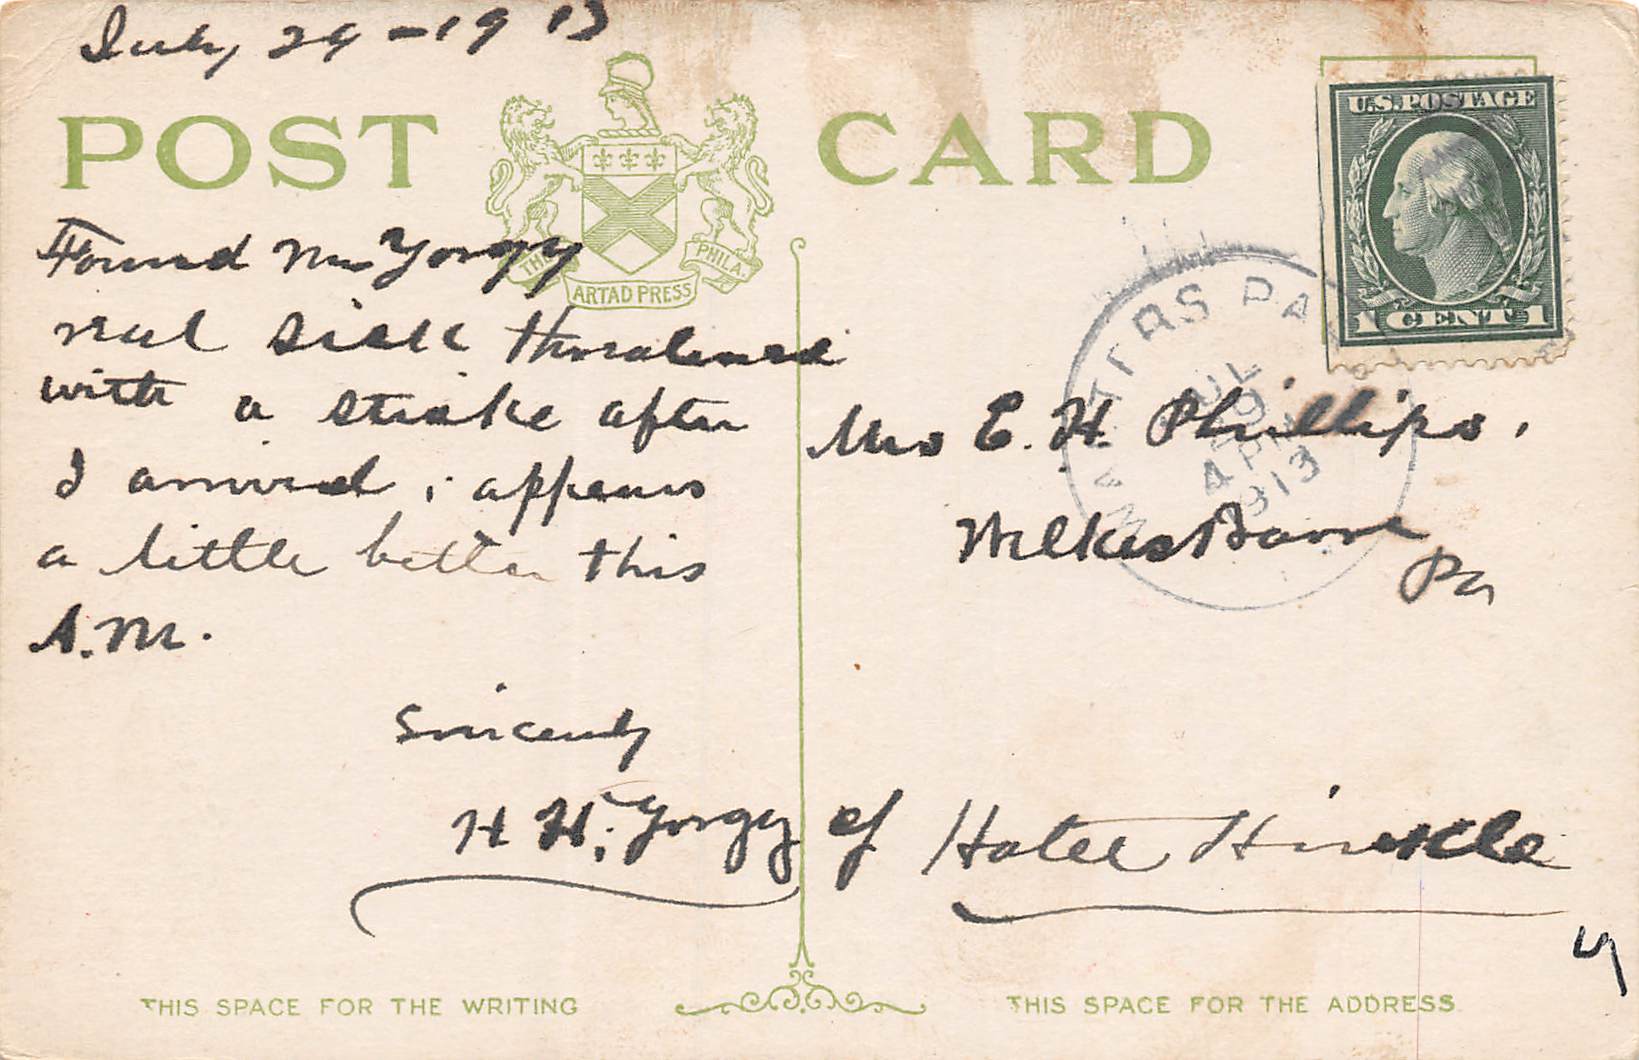 July 29-1913
POST CARD
THE ARTAD PRESS PHILA.
U.S. POSTAGE
1 CENT 1
Found Mr Yorgy
real sick threatened
with a stroke after
I arrived, appears
a little better this
A.M.
Sincerely
H H. Yorgy
WATERS PA
JUL
29
4 PM
1913
Mrs E. H. Phillips,
Wilkes Barre
Pa
of Hotel Hinkle
THIS SPACE FOR THE WRITING
THIS SPACE FOR THE ADDRESS